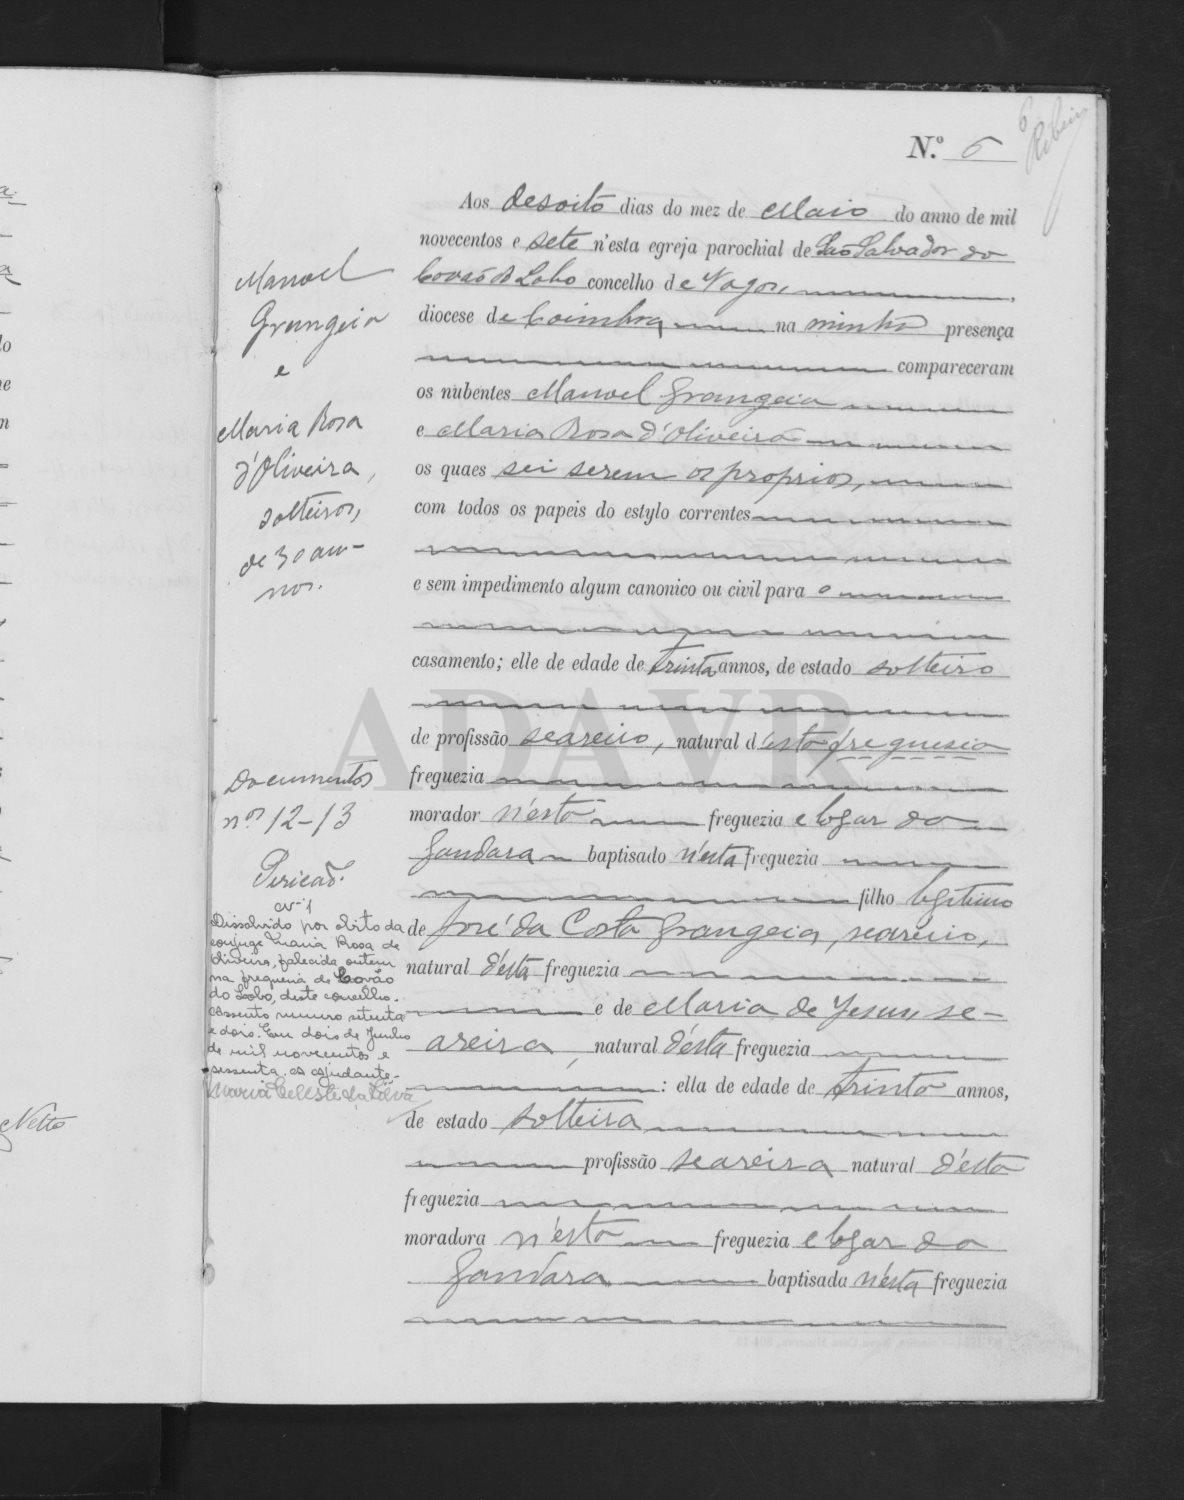 6
Ribeiro
N.º 6
Aos desoito dias do mez de Maio do anno de mil
novecentos e sete n'esta egreja parochial de São Salvador do
Covão do Lobo concelho de Vagos,
diocese de Coimbra na minha presença
compareceram
os nubentes Manoel Grangeia
e Maria Rosa d'Oliveira
os quaes sei serem os proprios,
com todos os papeis do estylo correntes
e sem impedimento algum canonico ou civil para o
casamento; elle de edade de trinta annos, de estado solteiro
de profissão seareiro, natural d'esta freguesia
freguezia
morador n'esta freguezia e logar da
Gandara baptisado n'esta freguezia
filho legitimo
de José da Costa Grangeia, seareiro,
natural d'esta freguezia
e de Maria de Jesus, se-
areira, natural d'esta freguezia
: ella de edade de trinta annos,
de estado solteira
profissão seareira natural d'esta
freguezia
moradora n'esta freguezia e logar da
Gandara baptisada n'esta freguezia
Manoel
Grangeia
e
Maria Rosa
d'Oliveira,
solteiros,
de 30 an-
nos.
Documentos
nos 12-13
nº 1
Dissolvido por obito da
conjuge Maria Rosa de
Oliveira, falecida ontem
na freguesia de Covão
do Lobo, deste concelho.
Assento numero setenta
e dois. Em dois de Junho
de mil novecentos e
sessenta. O Ajudante-
Maria Celeste da Silva
Netto
ADAVR